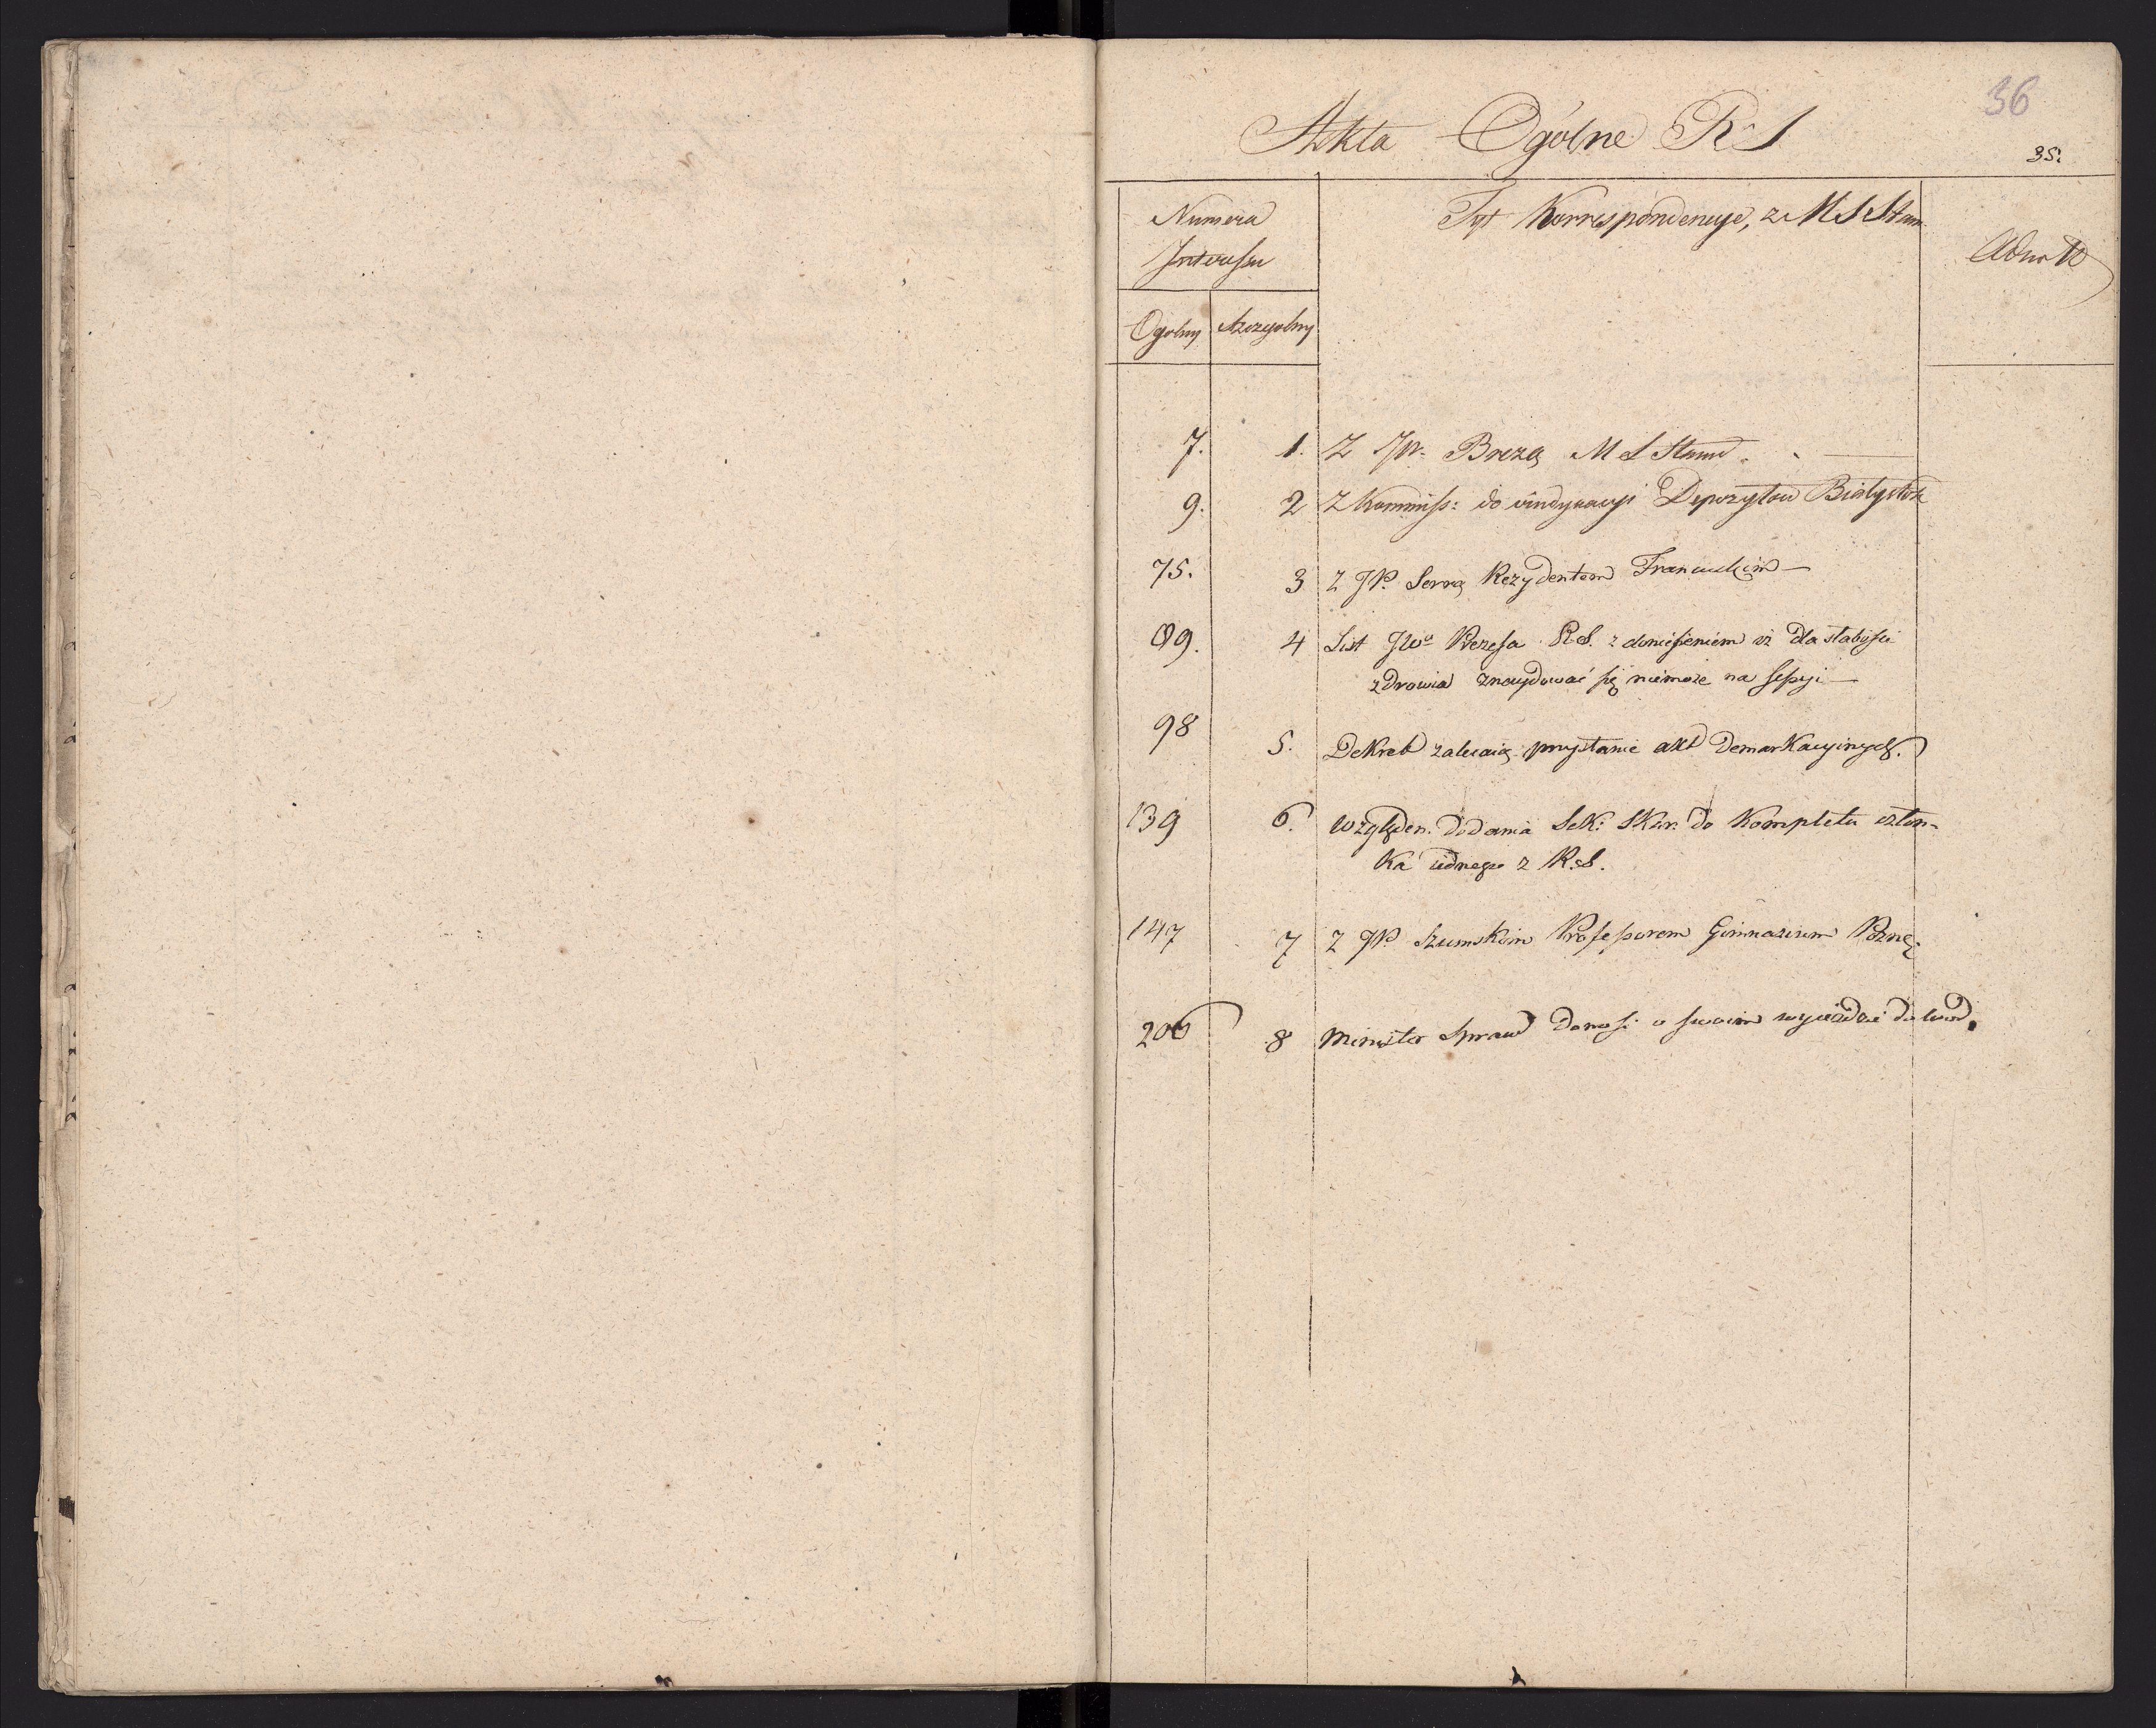 36
Akta Ogólne R S
35.
Numera
Interessu
Tyt Korrespondencye, z M S Stanu
Adnot
Ogolny Szczegolny
7. 1. Z JP. Brezą M S Stanu
9. 2 Z Kommiss: do vindykacyi Depozytow Białystok
75. 3 Z JP. Serrą Rezydentem Francuskim —
89. 4 List JWo Prezesa R.S. z doniesieniem iż dla słabości
zdrowia znaydować się niemoże na sessyi —
98 5. Dekret zalecaią. przysłanie akt Demarkacyinych.
139 6. Względem. dodania Sek: Skar. do Kompletu człon-
ka iednego z R.S.
147 7 Z JP. Szumskim Professorem Gimnazium Pozn:
206 8 Minister Spraw donosi o swoim wyieździe do wod.